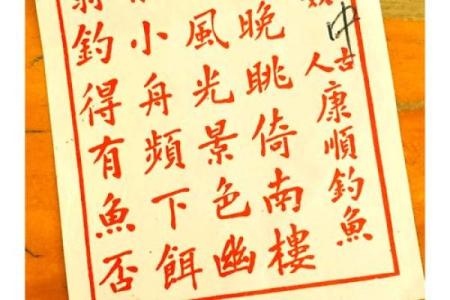 中
古人康順釣魚
晚眺倚南樓
風光景色幽
小舟頻下餌
釣得有魚否